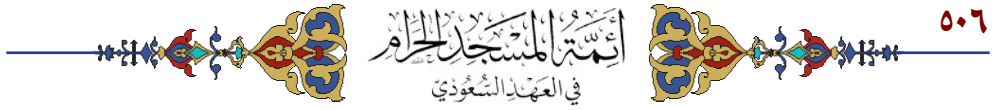 ٥٠٦
أَئِمَّةُ المَسْجِدِ الحَرَامِ
في العَهْدِ السُّعُودِيّ